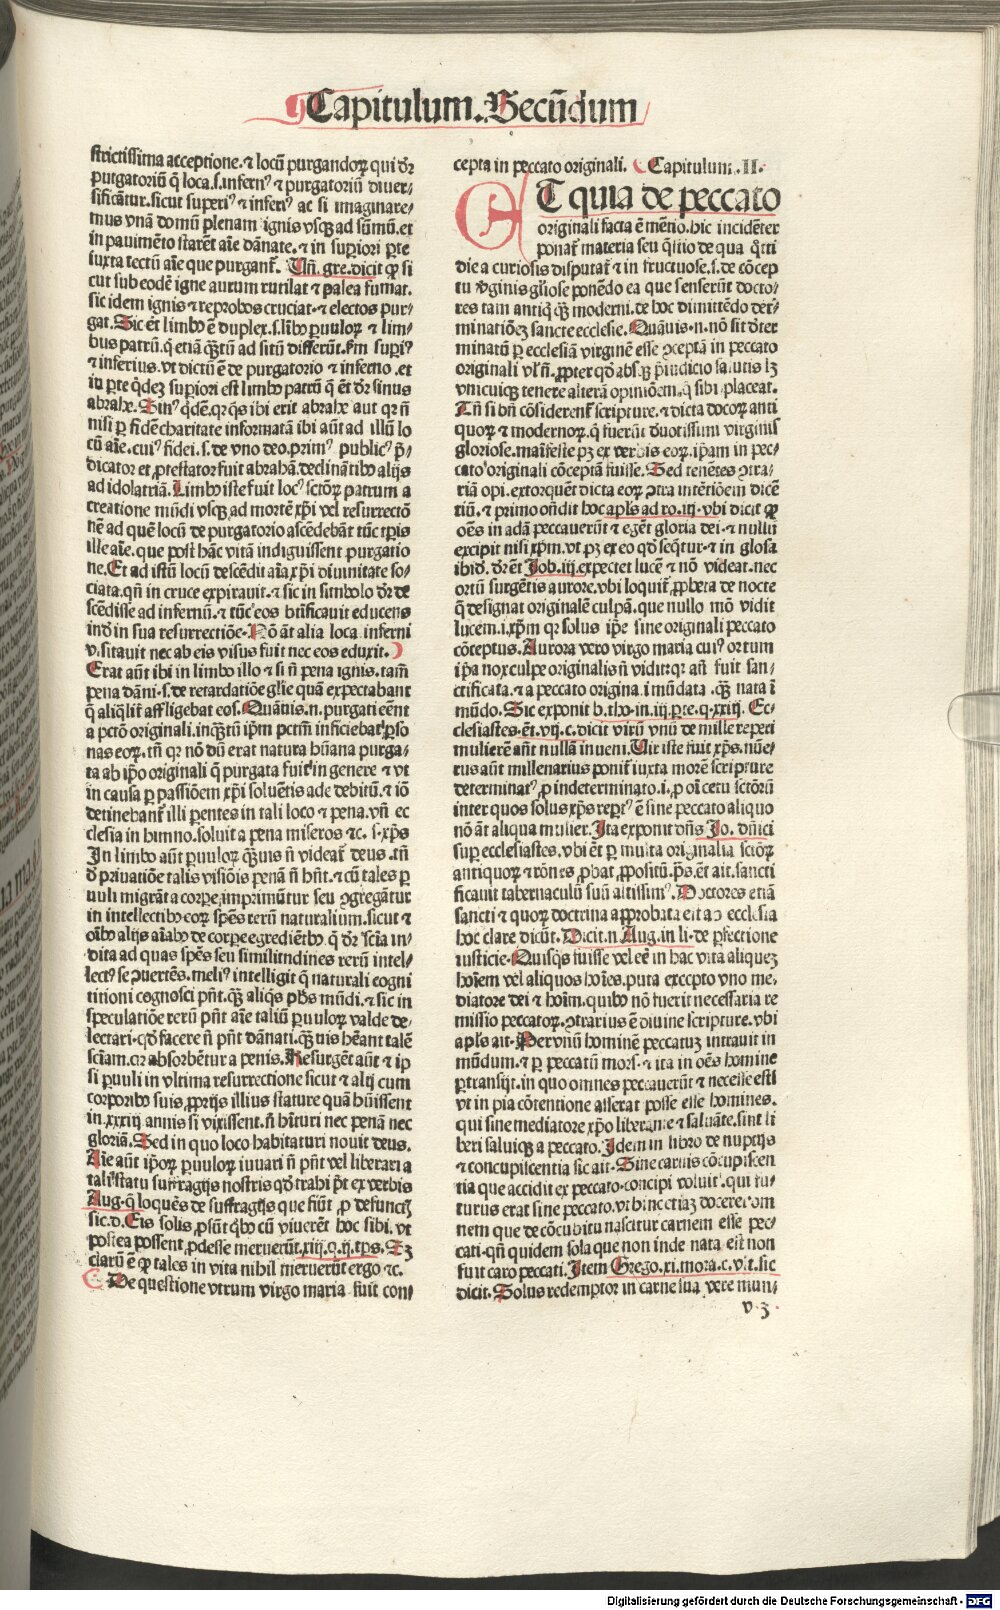 Capitulum. Secūdum
strictissima acceptione. ⁊ locū purgandoꝝ qui dr̄
purgatoriū q̄ loca. s. infernꝰ ⁊ purgatoriū diuer-
sificātur. sicut superiꝰ ⁊ inferiꝰ ac si imaginare-
mus vnā domū plenam ignis vsqꝫ ad sūmū. et
in pauimēto starēt aīe dānate. ⁊ in supiori pte
iuxta tectū aīe que purgant᷑. Tn̄. gre. dicit ꝙ si
cut sub eodē igne aurum rutilat ⁊ palea fumat.
sic idem ignis ⁊ reprobos cruciat. ⁊ electos pur-
gat. Sic et̄ limbꝰ ē duplex. s. lībꝰ puuloꝝ ⁊ lim-
bus patrū. q̄ etiā qꝫtū ad sitū differūt. ẜm supiꝰ
⁊ inferius. vt dictū ē de purgatorio ⁊ inferno. et
iū pte q̄dez supiori est limbꝰ patrū q̄ et̄ dr̄ sinus
abrahe. Sinꝰ q̄dē. qꝛ q̄s ibi erit abrahe aut qꝛ n̄
nisi p fidē charitate informatā ibi aūt ad illū lo
cū aīe. cuiꝰ fidei. s. de vno deo. primꝰ publicꝰ p̄-
dicator et ꝓtestator fuit abrahā. declinātibꝰ alijs
ad idolatriā. Limbꝰ iste fuit locꝰ sctōꝝ patrum a
creatione mūdi vsqꝫ ad mortē xp̄i vel resurrectō
nē ad quē locū de purgatorio ascēdebāt tūc tꝑis
ille aīe. que post hāc vitā indiguissent purgatio
ne. Et ad istū locū descēdit aīa xp̄i diuinitate so-
ciata. qn̄ in cruce expirauit. ⁊ sic in simbolo dr̄ de
scēdisse ad infernū. ⁊ tūc eos btīficauit educens
indē in sua resurrectiōe. Nō āt alia loca inferni
visitauit nec ab eis visus fuit nec eos eduxit.
Erat aūt ibi in limbo illo ⁊ si n̄ pena ignis. tam̄
pena dāni. s. de retardatiōe glīe quā expectabant
q̄ aliq̄lit᷑ affligebat eos. Quāuis. n. purgati eēnt
a pctō originali. inqꝫtū ip̄m pctm̄ inficiebat pso
nas eoꝝ. tn̄ qꝛ nō dū erat natura hūana purga-
ta ab ip̄o originali q̄ purgata fuit in genere ⁊ vt
in causa p passiōem xp̄i soluētis ade debitū. ⁊ iō
detinebant᷑ illi pentes in tali loco ⁊ pena. vn̄ ec
clesia in himno. soluit a pena miseros ⁊c. s. xp̄s
In limbo aūt puuloꝝ qꝫuis n̄ videat᷑ deus. tn̄
d priuatiōe talis visiōis penā n̄ hn̄t. ⁊ cū tales p
uuli migrāt a corpe imprimūtur seu ɔgregātur
in intellectibꝰ eoꝝ spēs rerū naturalium. sicut ⁊
oībꝰ alijs aīabꝰ de corpe egrediētibꝰ q̄ dr̄ scīa in-
dita ad quas spēs seu similitudines rerū intel-
lectꝰ se ɔuertēs. meliꝰ intelligit q̄ naturali cogni
titioni cognosci pn̄t. qꝫ aliq̄s phs mūdi. ⁊ sic in
speculatiōe rerū pn̄t aīe taliū puuloꝝ valde de-
lectari. qd̄ facere n̄ pn̄t dānati. qꝫuis heant talē
sciam. qꝛ absorbētur a penis. Resurgēt aūt ⁊ ip
si puuli in vltima resurrectione sicut ⁊ alij cum
corporibꝰ suis ꝓprijs illius stature quā hūissent
in. xxxiij annis si vixissent. n̄ hituri nec penā nec
gloriā. Sed in quo loco habitaturi nouit deus.
Aīe aūt ip̄oꝝ puuloꝝ iuuari n̄ pn̄t vel liberari a
tali statu suffragijs nostris qd̄ trahi pt̄ ex verbis
Aug. q̄ loquēs de suffragijs que fiūt ꝓ defunctꝭ
sic. d. Eis solis ꝓsūt qbꝰ cū viuerēt hoc sibi. vt
postea possent ꝓdesse meruerūt. xiij. q. ij. tp̄s. Sꝫ
clarū ē ꝙ tales in vita nihil meruerūt ergo ⁊c.
De questione vtrum virgo maria fuit con-
cepta in peccato originali. Capitulum. II.
ET quia de peccato
originali facta ē mētio. hic incidēter
ponat᷑ materia seu q̄stio de qua q̄tti
die a curiosis disputat᷑ ⁊ in fructuose. s. de cōcep
tu vginis gl̄iose ponēdo ea que senserūt docto-
res tam antiq̄ qꝫ moderni. de hoc dimittēdo deter-
minatiōez sancte ecclesie. Quāuis. n. nō sit dter
minatū p ecclesiā virginē esse ɔceptā in peccato
originali vl̄ n̄. ꝓpter qd̄ absqꝫ p̄iudicio salutis lꝫ
vnicuiqꝫ tenere alterā opiniōem. q̄ sibi placeat.
Tn̄ si bn̄ cōsiderent᷑ scripture. ⁊ dicta doctoꝝ anti
quoꝝ ⁊ modernoꝝ. q̄ fuerūt deuotissimi virginis
gloriose. manifeste pꝫ ex verbis eoꝝ. ip̄am in pec-
cato originali cōceptā fuisse. Sed tenētes ɔtra-
riā opi. extorquēt dicta eoꝝ ɔtra intētiōem dicē
tiū. ⁊ primo on̄dit hoc apl̄s ad ro. iij. vbi dicit ꝙ
oēs in adā peccauerūt ⁊ egēt gloria dei. ⁊ nullū
excipit nisi xp̄m. vt pꝫ ex eo qd̄ seq̄tur. ⁊ in glosa
ibid. dr̄ et̄ Job. iij. expectet lucē ⁊ nō videat. nec
ortū surgētis aurore. vbi loquit᷑ ꝓpheta de nocte
q̄ designat originalē culpā. que nullo mō vidit
lucem. i. xp̄m qꝛ solus ip̄e sine originali peccato
cōceptus. Aurora vero virgo maria cuiꝰ ortum
ip̄a nox culpe originalis n̄ vidit: qꝛ an̄ fuit san-
ctificata. ⁊ a peccato originali mūdata qꝫ nata ī
mūdo. Sic exponit b. tho. in. iij. p̄te. q. xxiij. Ec-
clesiastes. et̄. vij. c. dicit virū vnū de mille reperi
mulierē aūt nullā inueni. Uir iste fuit xp̄s. nūe-
rus aūt millenarius ponit᷑ iuxta morē scripture
determinatꝰ ꝓ indeterminato. i. ꝓ oī cetu sctōrū
inter quos solus xp̄s reptꝰ ē sine peccato aliquo
nō āt aliqua mulier. Ita exponit dn̄s Jo. dn̄ici
sup ecclesiastes. vbi et̄ p multa originalia sctōꝝ
antiquoꝝ ⁊ rōnes ꝓbat ꝓpositū. ps̄. et̄ ait. sancti
ficauit tabernaculū suū altissimꝰ. Doctores etiā
sancti ⁊ quoꝝ doctrina approbata est ab ecclesia
hoc clare dicūt. Dicit. n. Aug. in li. de pfectione
iusticie. Quisqs fuisse vel eē in hac vita aliquez
hoīem vel aliquos hoīes. puta excepto vno me-
diatore dei ⁊ hoīm. quibꝰ nō fuerit necessaria re
missio peccatoꝝ. ɔtrarius ē diuine scripture. vbi
apl̄s ait. Per vnū hominē peccatuꝫ intrauit in
mūdum. ⁊ p peccatū mors. ⁊ ita in oēs homine
ptransijt. in quo omnes peccauerūt ⁊ necesse est
vt in pia cōtentione asserat posse esse homines.
qui sine mediatore xp̄o liberante ⁊ saluāte. sint li
beri saluiqꝫ a peccato. Idem in libro de nuptijs
⁊ concupiscentia sic ait. Sine carnis cōcupiscen
tia que accidit ex peccato concipi voluit. qui fu-
turus erat sine peccato. vt hinc etiaꝫ doceret om
nem que de cōcubitu nascitur carnem esse pec-
cati. qn̄ quidem sola que non inde nata est non
fuit caro peccati. Item Grego. xi. mora. c. vlt. sic
dicit. Solus redemptor in carne sua vere mun-
v. 3
Digitalisierung gefördert durch die Deutsche Forschungsgemeinschaft - DFG